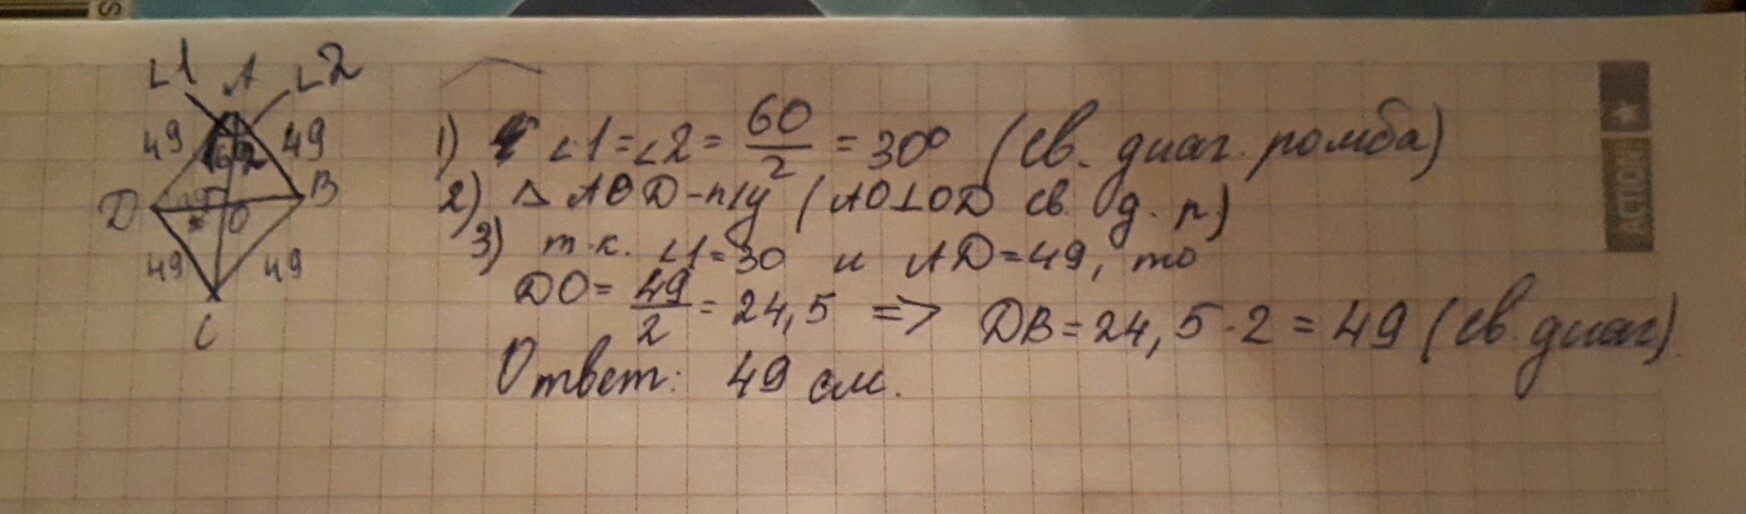 ∠1 A ∠2
49 49
D O B
49 49
C
1) ∠1=∠2= 60/2 = 30° (св. диаг. ромба)
2) △ AOD-п/у (AO⊥OD св. д. р)
3) т.к. ∠1=30 и AD=49, то
DO= 49/2 = 24,5 => DB=24,5·2=49 (св. диаг)
Ответ: 49 см.
ACTION